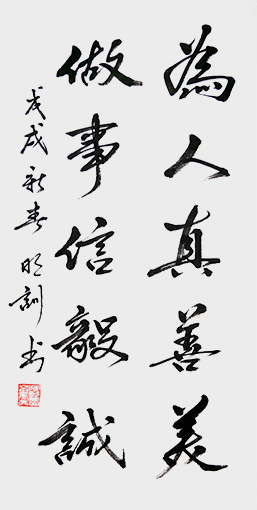 為人真善美
做事信毅誠
戊戌新春明訓书